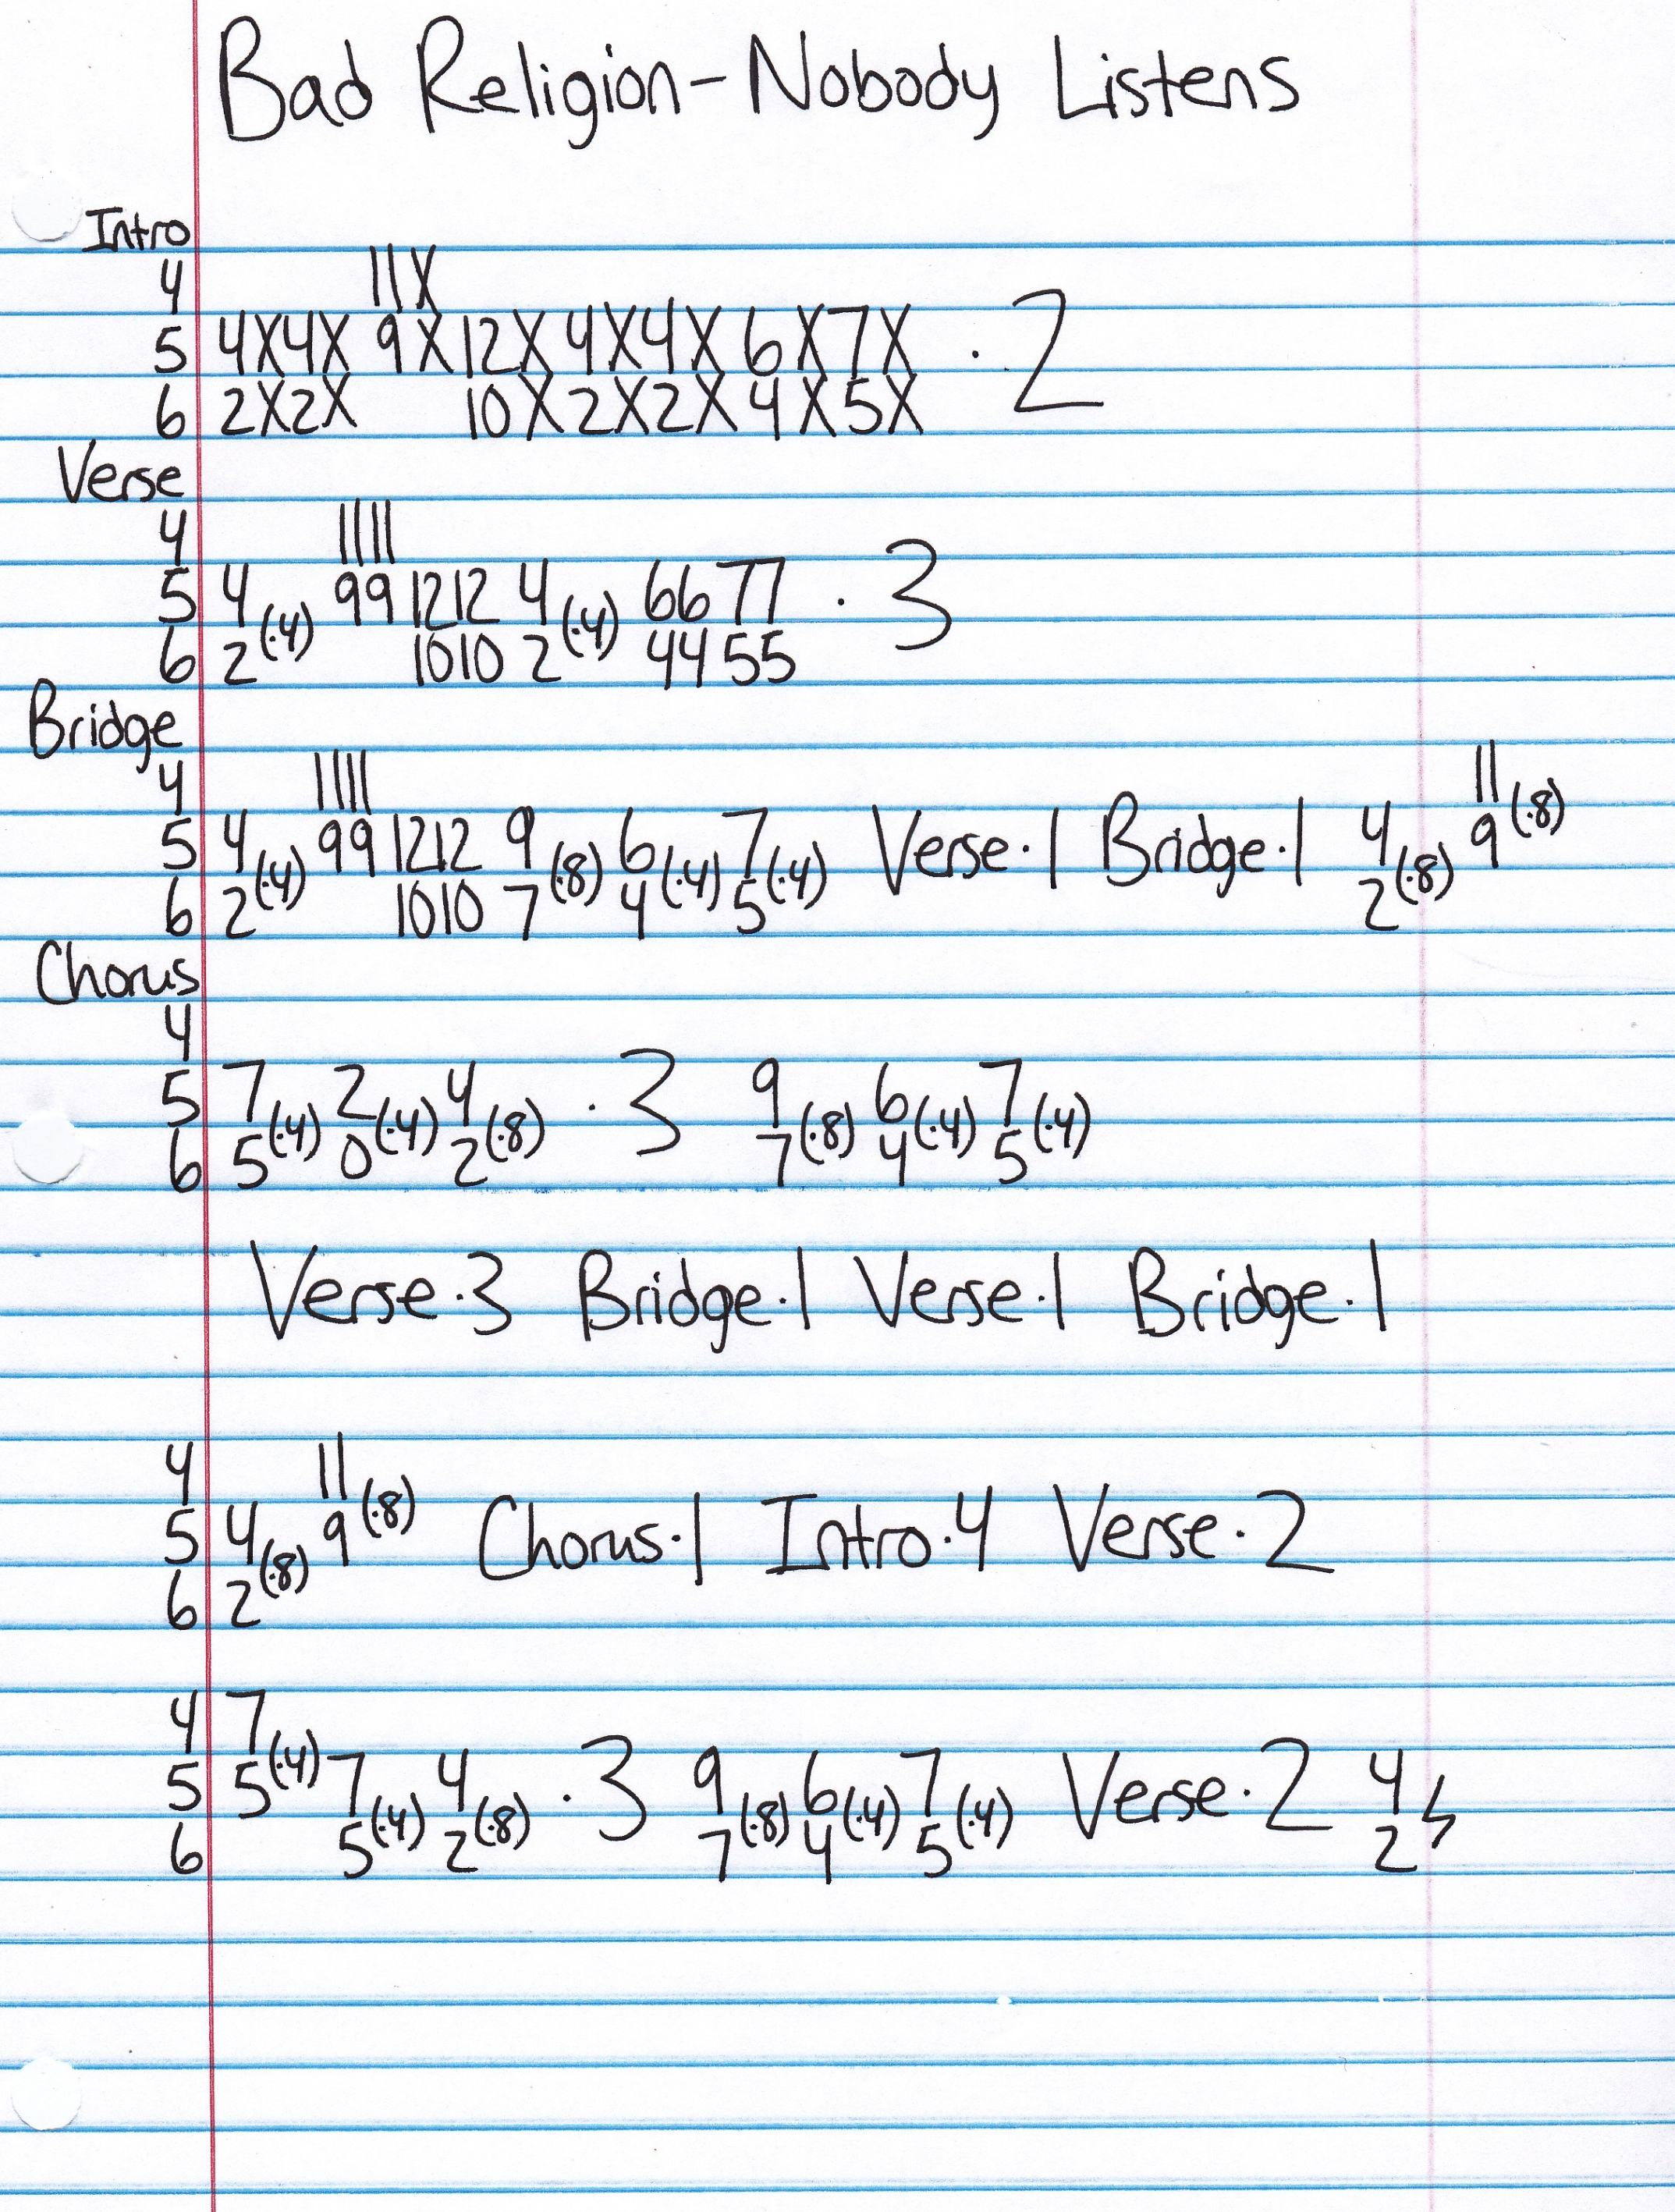 Bad Religion - Nobody Listens
Intro
4 11X
5 4X4X 9X12X4X4X6X7X · 2
6 2X2X 10X2X2X4X5X
Verse
4 1111
5 4(·4) 99 1212 4(·4) 66 77 · 3
6 2 1010 2 44 55
Bridge
4 1111 11(·8)
5 4(·4) 99 1212 9(·8) 6(·4) 7(·4) Verse·1 Bridge·1 4(·8) 9
6 2 1010 7 4 5 2
Chorus
4
5 7(·4) 2(·4) 4(·8) · 3 9(·8) 6(·4) 7(·4)
6 5 0 2 7 4 5
Verse·3 Bridge·1 Verse·1 Bridge·1
4 11
5 4(·8) 9(·8) Chorus·1 Intro·4 Verse·2
6 2
4 7
5 5(·4) 7(·4) 4(·8) · 3 9(·8) 6(·4) 7(·4) Verse·2 4
6 5 2 7 4 5 2